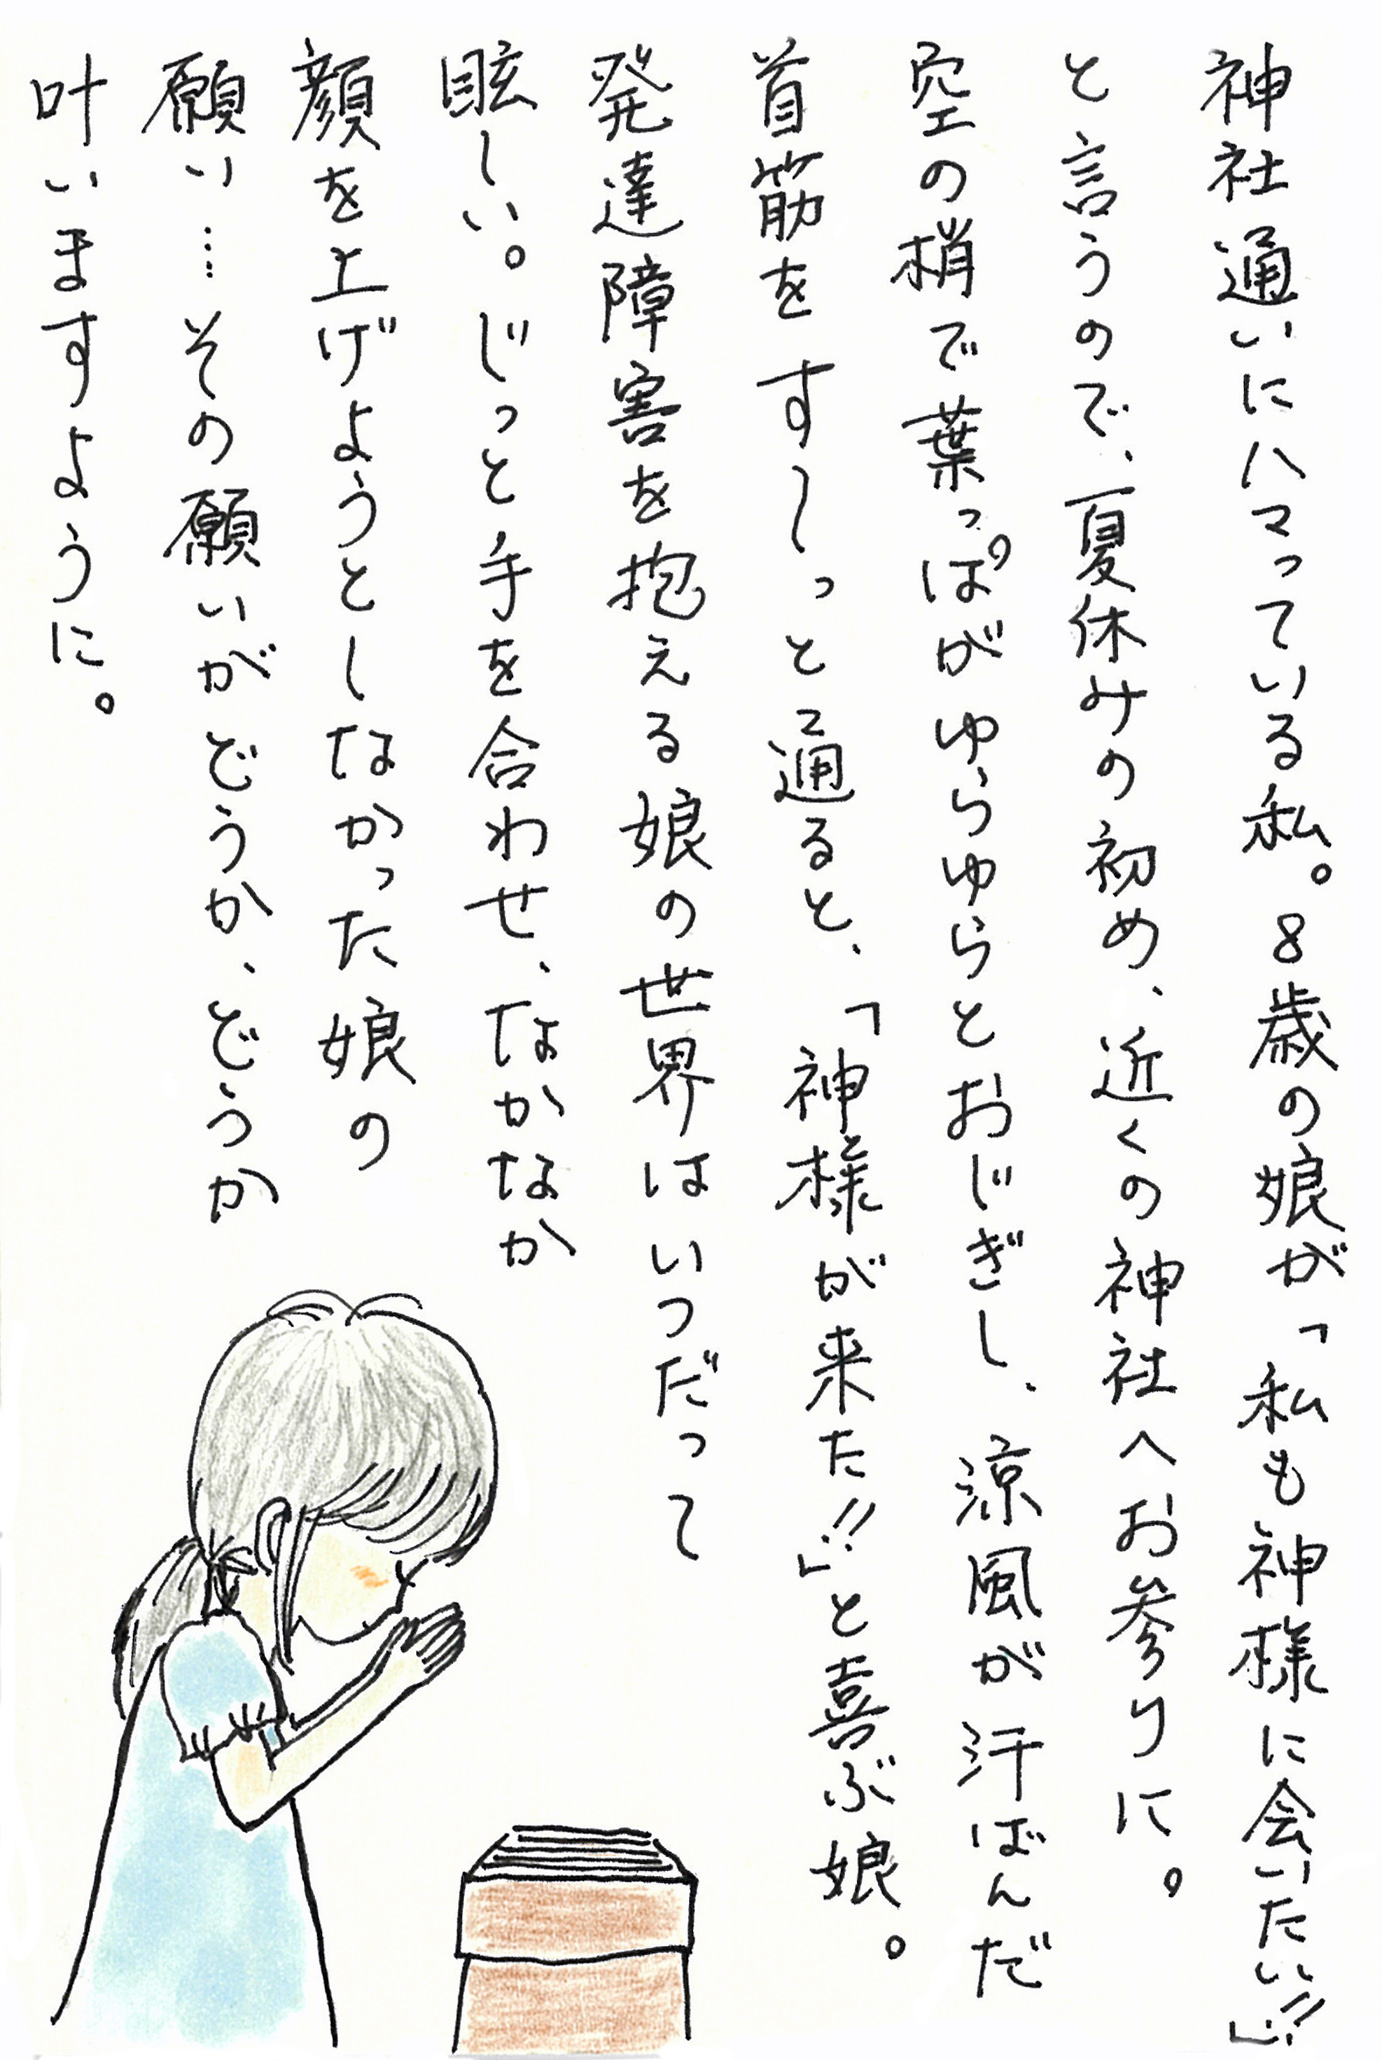 神社通いにハマっている私。8歳の娘が「私も神様に会いたい!!」
と言うので、夏休みの初め、近くの神社へお参りに。
空の梢で葉っぱがゆらゆらとおじぎし、涼風が汗ばんだ
首筋をすーっと通ると、「神様が来た!!」と喜ぶ娘。
発達障害を抱える娘の世界はいつだって
眩しい。じっと手を合わせ、なかなか
顔を上げようとしなかった娘の
願い…その願いがどうか、どうか
叶いますように。